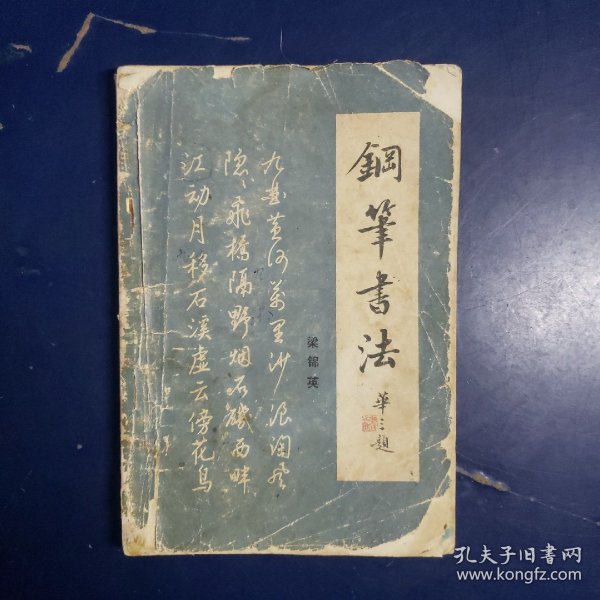 鋼筆書法
華三題
梁锦英
九曲黄河萬里沙浪淘風
隐々飛橋隔野烟石磯西畔
江动月移石溪虚云傍花鸟
孔夫子旧书网
www.kongfz.com